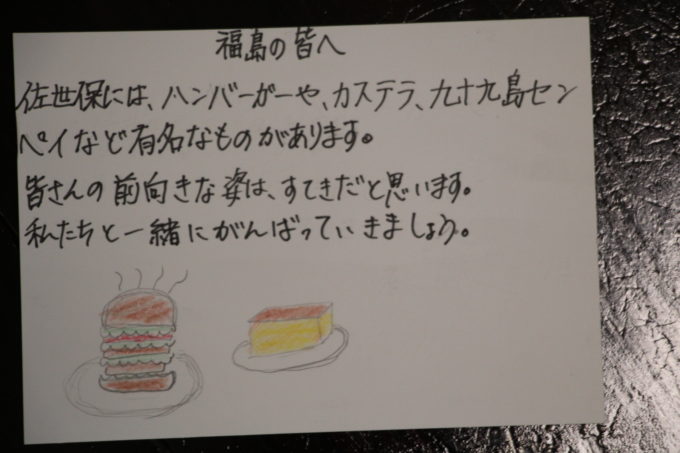 福島の皆へ
佐世保には、ハンバーガーや、カステラ、九十九島セン
ペイなど有名なものがあります。
皆さんの前向きな姿は、すてきだと思います。
私たちと一緒にがんばっていきましょう。